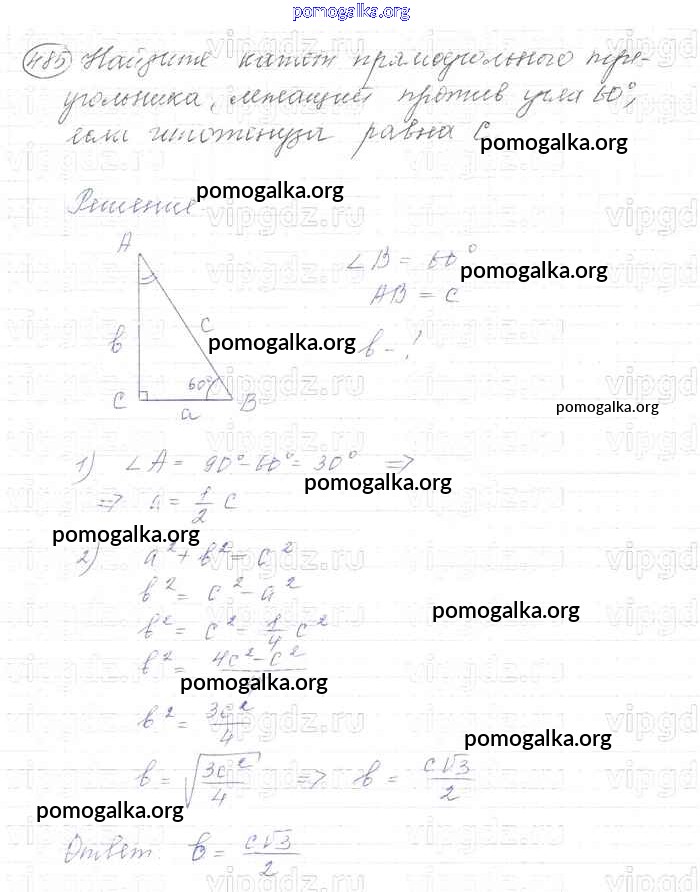 pomogalka.org
485 Найдите катет прямоугольного тре-
угольника, лежащий против угла 60°,
если гипотенуза равна c
pomogalka.org
Решение
pomogalka.org
vipgdz.ru
A
∠B = 60°
pomogalka.org
AB = c
c
b
pomogalka.org
b - ?
60°
C
a
B
pomogalka.org
1) ∠A = 90° - 60° = 30° =>
pomogalka.org
=> a = 1/2 c
pomogalka.org
2) a² + b² = c²
b² = c² - a²
pomogalka.org
b² = c² - 1/4 c²
b² = 4c² - c²
pomogalka.org
b² = 3c²/4
pomogalka.org
b = √(3c²/4) => b = c√3/2
pomogalka.org
Ответ: b = c√3/2